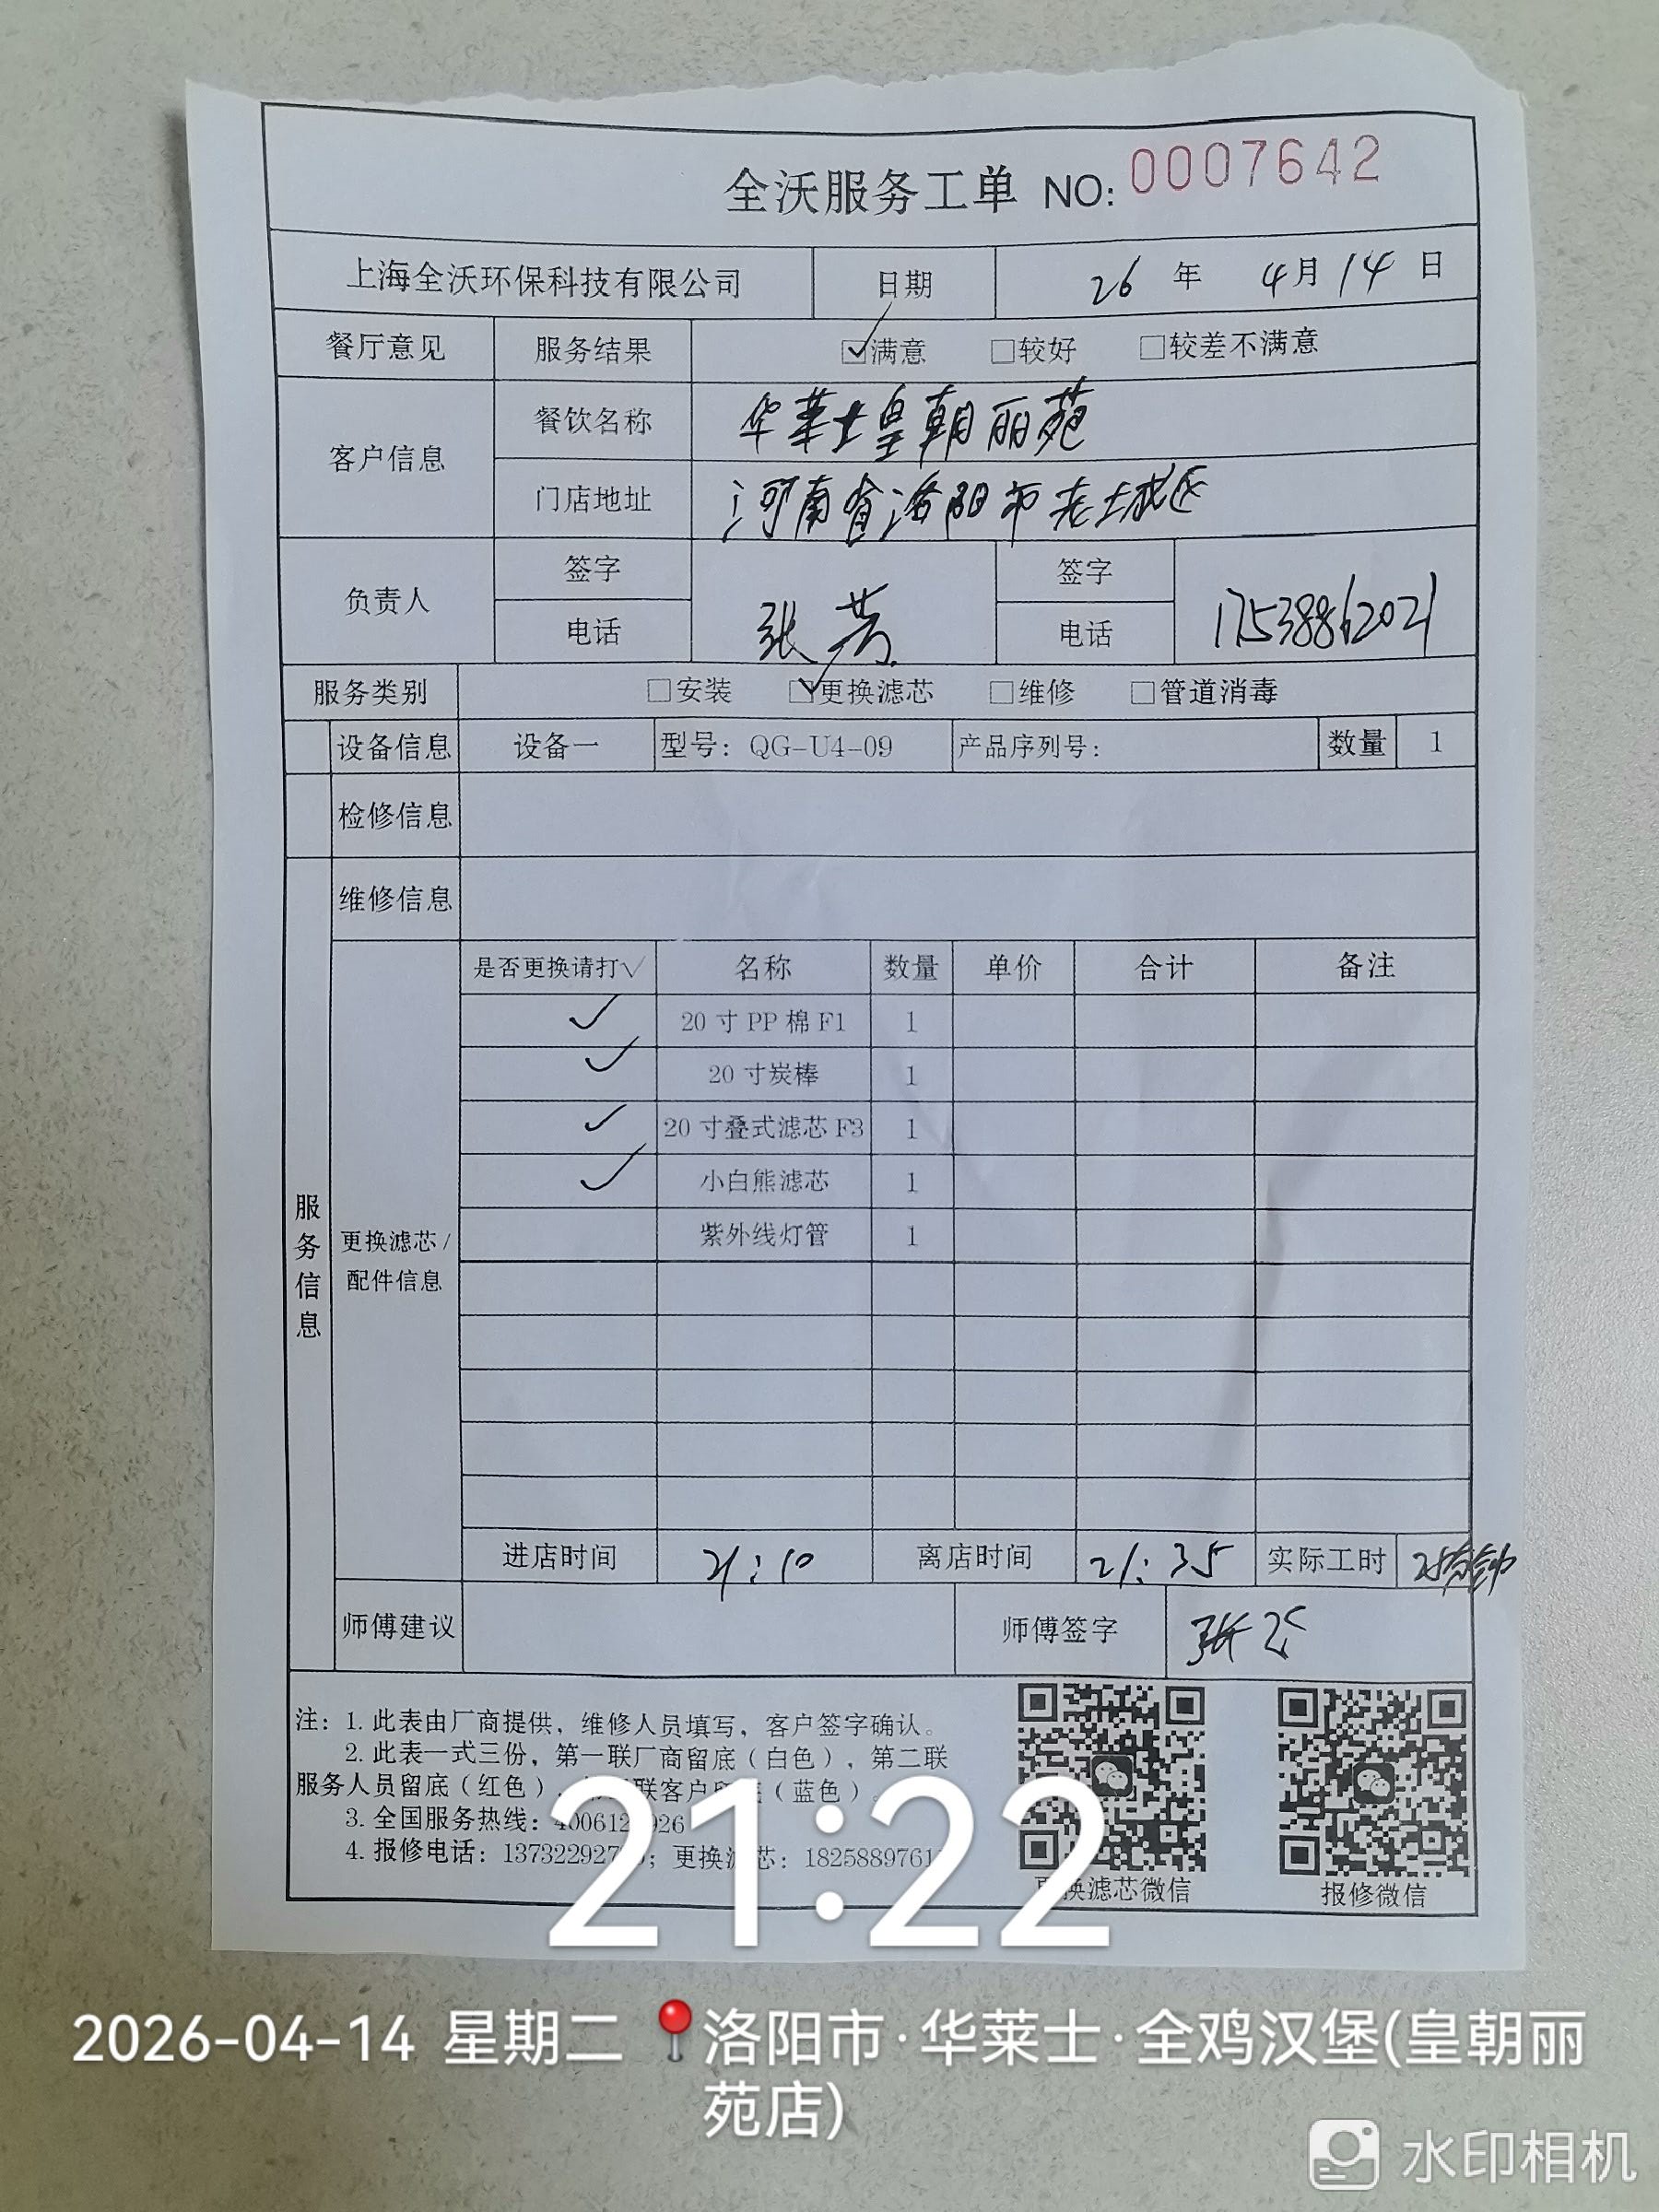 全沃服务工单 NO: 0007642
上海全沃环保科技有限公司 日期 26 年 4月 14 日
餐厅意见 服务结果 ☑满意 □较好 □较差不满意
客户信息 餐饮名称 华莱士皇朝丽苑
门店地址 河南省洛阳市老城区
负责人 签字 电话 张芳 签字 电话 17538862021
服务类别 □安装 ☑更换滤芯 □维修 □管道消毒
设备信息 设备一 型号: QG-U4-09 产品序列号: 数量 1
检修信息
维修信息
服务信息
更换滤芯/
配件信息
是否更换请打√ 名称 数量 单价 合计 备注
✓ 20 寸 PP 棉 F1 1
✓ 20 寸炭棒 1
✓ 20 寸叠式滤芯 F3 1
✓ 小白熊滤芯 1
紫外线灯管 1
进店时间 21:10 离店时间 21:35 实际工时 25分钟
师傅建议 师傅签字 张
注: 1. 此表由厂商提供, 维修人员填写, 客户签字确认。
2. 此表一式三份, 第一联厂商留底(白色), 第二联
服务人员留底(红色), 联客户 (蓝色)。
3. 全国服务热线:
4. 报修电话: ; 更换 芯:
换滤芯微信 报修微信
21:22
2026-04-14 星期二 洛阳市·华莱士·全鸡汉堡(皇朝丽
苑店)
水印相机